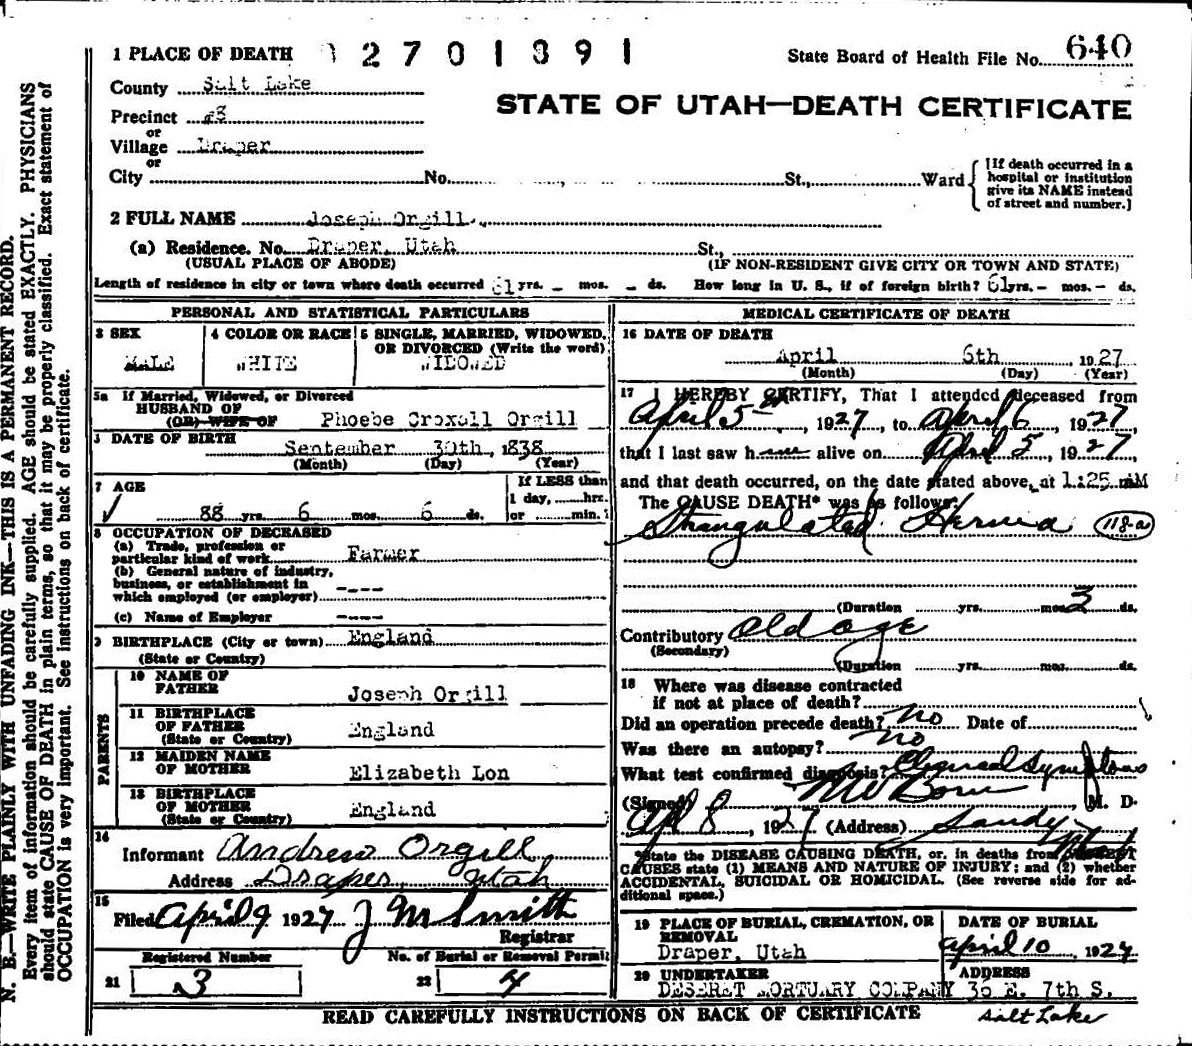 N. B.—WRITE PLAINLY WITH UNFADING INK—THIS IS A PERMANENT RECORD.
Every item of information should be carefully supplied. AGE should be stated EXACTLY. PHYSICIANS
should state CAUSE OF DEATH in plain terms, so that it may be properly classified. Exact statement of
OCCUPATION is very important. See instructions on back of certificate.
1 PLACE OF DEATH
State Board of Health File No. 640
County Salt Lake
STATE OF UTAH—DEATH CERTIFICATE
Precinct #3
or
Village Draper
or
City No. St., Ward
[If death occurred in a
hospital or institution
give its NAME instead
of street and number.]
2 FULL NAME Joseph Orgill
(a) Residence. No. Draper, Utah St.,
(USUAL PLACE OF ABODE) (IF NON-RESIDENT GIVE CITY OR TOWN AND STATE)
Length of residence in city or town where death occurred 61 yrs. - mos. - ds. How long in U. S., if of foreign birth? 61 yrs. - mos. - ds.
PERSONAL AND STATISTICAL PARTICULARS
3 SEX
MALE
4 COLOR OR RACE
WHITE
5 SINGLE, MARRIED, WIDOWED,
OR DIVORCED (Write the word)
WIDOWED
5a If Married, Widowed, or Divorced
HUSBAND OF
(OR) WIFE OF Phoebe Croxall Orgill
DATE OF BIRTH
September 30th, 1838
(Month) (Day) (Year)
7 AGE
88 yrs. 6 mos. 6 ds.
If LESS than
1 day, hrs.
or min.
8 OCCUPATION OF DECEASED
(a) Trade, profession or
particular kind of work Farmer
(b) General nature of industry,
business, or establishment in
which employed (or employer) ----
(c) Name of Employer ----
9 BIRTHPLACE (City or town) England
(State or Country)
PARENTS
10 NAME OF
FATHER Joseph Orgill
11 BIRTHPLACE
OF FATHER England
(State or Country)
12 MAIDEN NAME
OF MOTHER Elizabeth Lon
13 BIRTHPLACE
OF MOTHER England
(State or Country)
14
Informant Andrew Orgill
Address Draper, Utah
15
Filed April 9 1927 J M Smith
Registrar
Registered Number No. of Burial or Removal Permit
21 3 22 4
MEDICAL CERTIFICATE OF DEATH
16 DATE OF DEATH
April 6th 1927
(Month) (Day) (Year)
17 I HEREBY CERTIFY, That I attended deceased from
April 5th, 1927, to April 6, 1927
that I last saw him alive on April 5, 1927,
and that death occurred, on the date stated above, at 1:25 AM
The CAUSE DEATH* was as follows:
Strangulated Hernia 118-a
(Duration yrs. mos. 3 ds.
Contributory old age
(Secondary)
(Duration yrs. mos. ds.
18 Where was disease contracted
if not at place of death?
Did an operation precede death? No Date of
Was there an autopsy? No
What test confirmed diagnosis? Clinical Symptoms
(Signed) M. D.
Apl 8, 1927 (Address) Sandy Utah
*State the DISEASE CAUSING DEATH, or, in deaths from VIOLENT
CAUSES state (1) MEANS AND NATURE OF INJURY; and (2) whether
ACCIDENTAL, SUICIDAL OR HOMICIDAL. (See reverse side for ad-
ditional space.)
19 PLACE OF BURIAL, CREMATION, OR
REMOVAL
Draper, Utah
DATE OF BURIAL
April 10, 1927
20 UNDERTAKER
DESERET MORTUARY COMPANY
ADDRESS
36 E. 7th S.
Salt Lake
READ CAREFULLY INSTRUCTIONS ON BACK OF CERTIFICATE